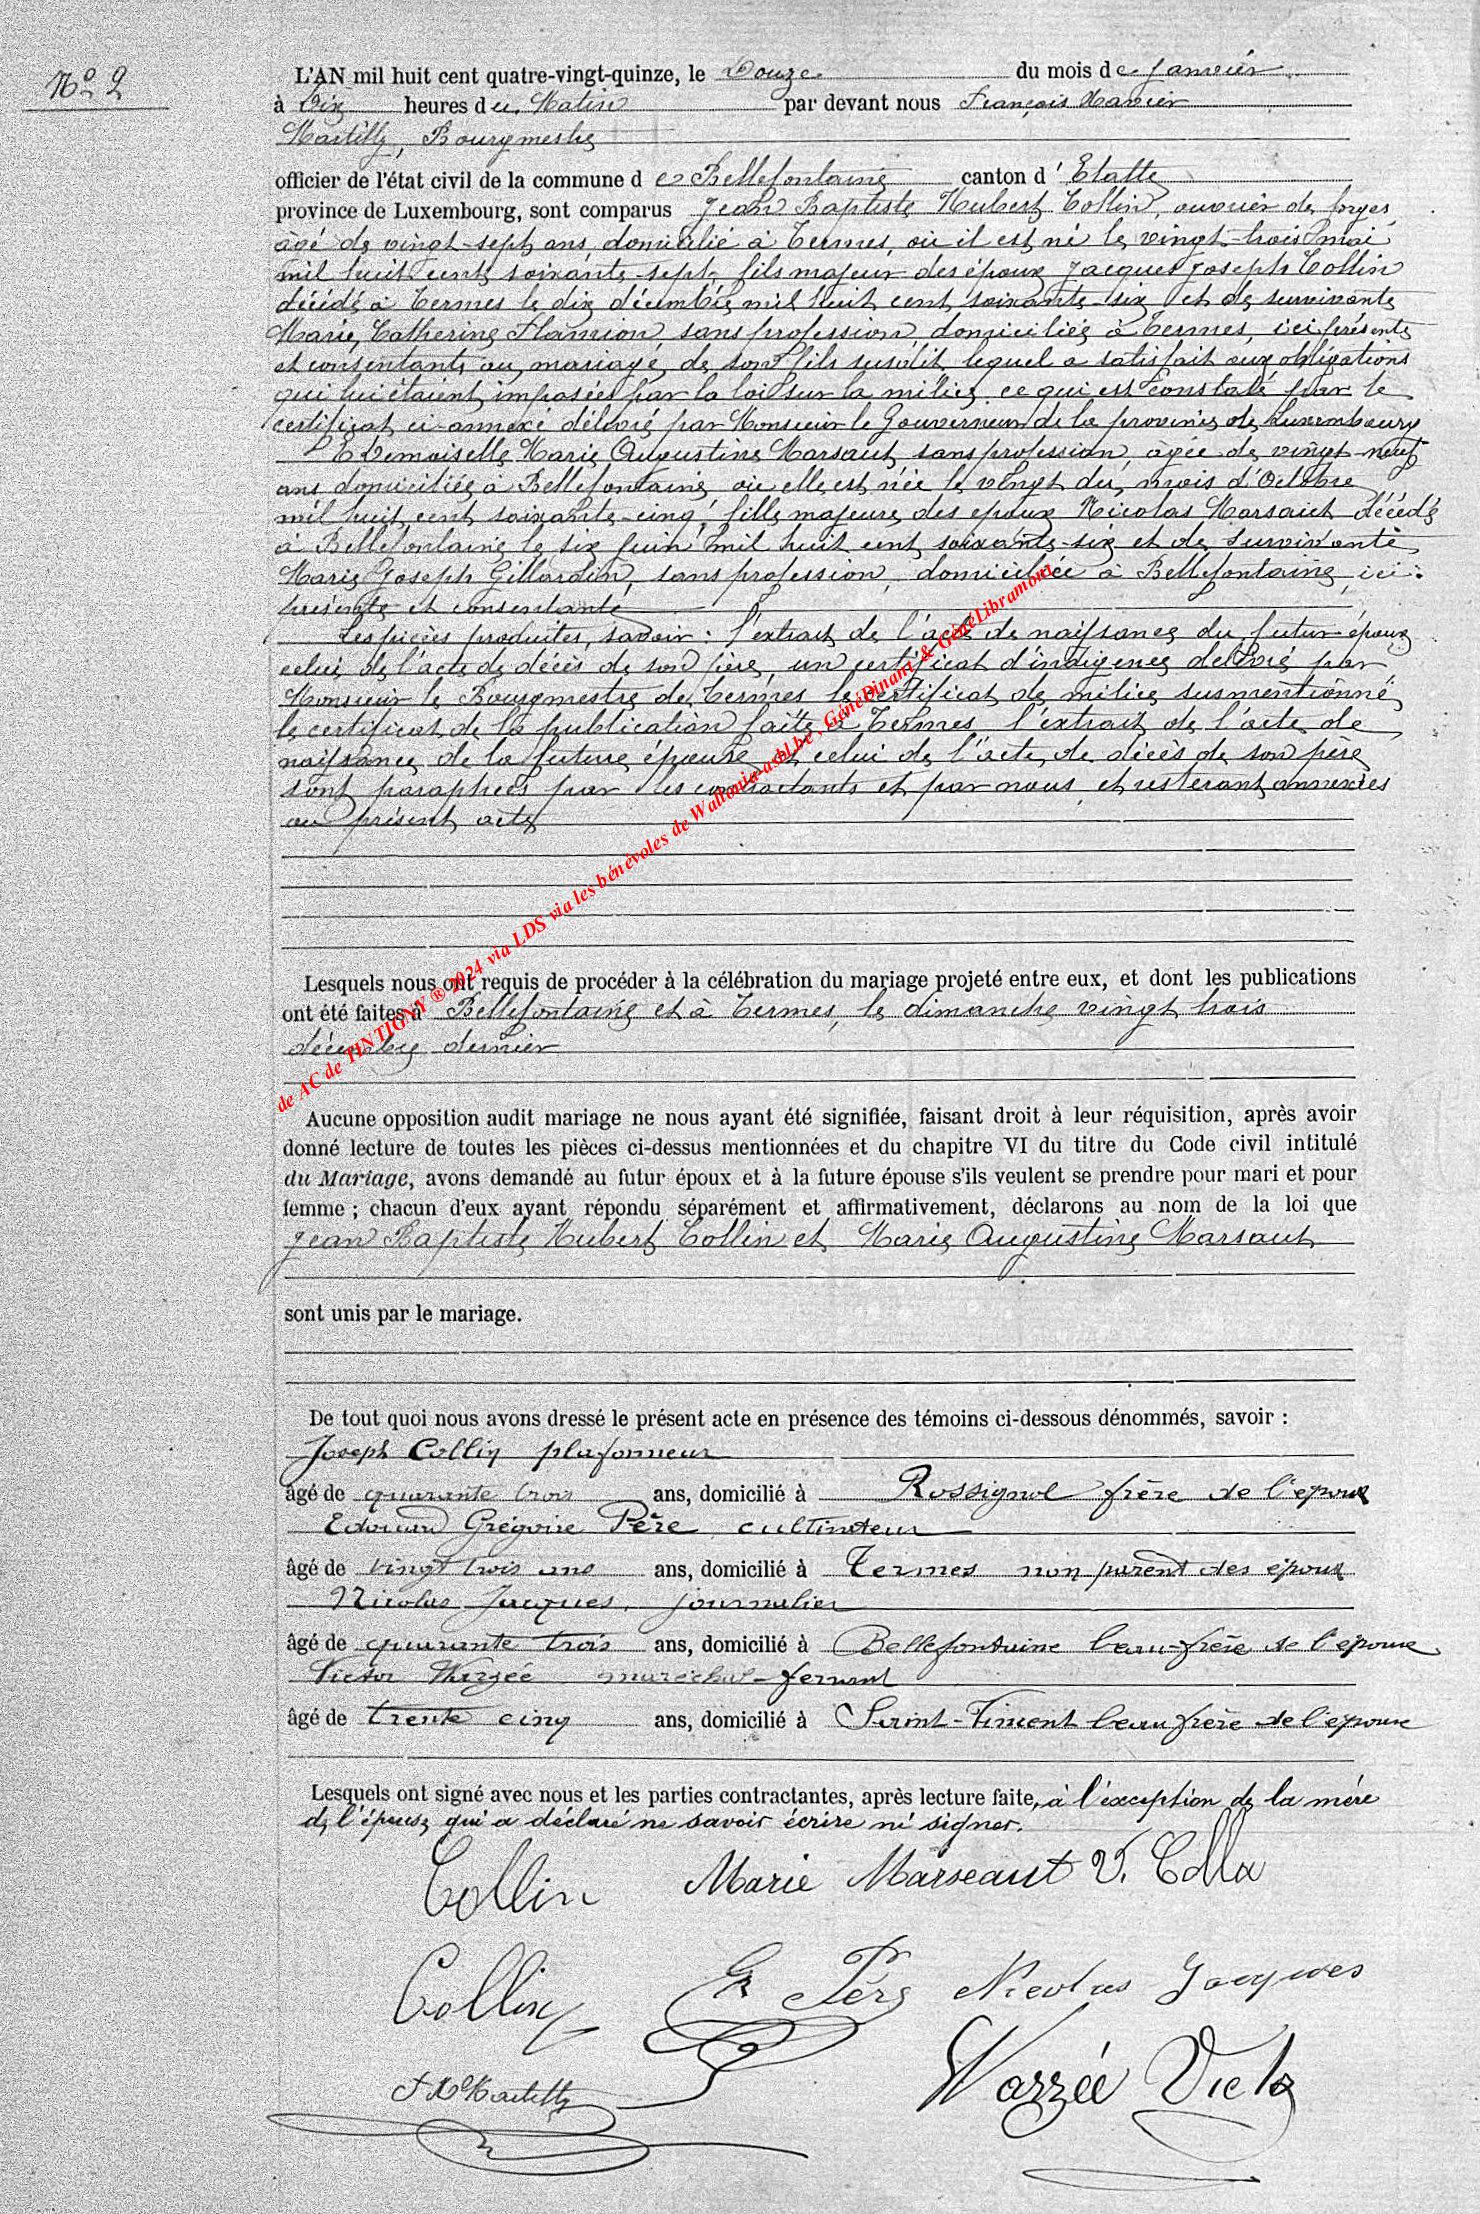 No 2
L'AN mil huit cent quatre-vingt-quinze, le Douze du mois de Janvier
à Dix heures du Matin par devant nous François Xavier
Martilly, Bourgmestre
officier de l'état civil de la commune de Bellefontaine canton d'Etalle
province de Luxembourg, sont comparus Jean Baptiste Hubert Collin, ouvrier de forges,
âgé de vingt-sept ans, domicilié à Termes, où il est né le vingt-trois mai
mil huit cent soixante-sept, fils majeur des époux Jacques Joseph Collin
décédé à Termes le dix décembre mil huit cent soixante-six et de survivante
Marie Catherine Flamion, sans profession, domiciliée à Termes, ici présente
et consentante au mariage de son fils susdit lequel a satisfait aux obligations
qui lui étaient imposées par la loi sur la milice, ce qui est constaté par le
certificat ci-annexé délivré par Monsieur le Gouverneur de la province de Luxembourg
Et Demoiselle Marie Augustine Marsaut, sans profession, âgée de vingt-neuf
ans domiciliée à Bellefontaine où elle est née le vingt du mois d'Octobre
mil huit cent soixante-cinq, fille majeure des époux Nicolas Marsaut décédé
à Bellefontaine le six Juin mil huit cent soixante-six et de survivante
Marie Joseph Gillardin, sans profession, domiciliée à Bellefontaine, ici
présente et consentante
Les pièces produites, savoir : l'extrait de l'acte de naissance du futur époux
celui de l'acte de décès de son père, un certificat d'indigence délivré par
Monsieur le Bourgmestre de Termes le certificat de milice susmentionné
le certificat de la publication faite à Termes l'extrait de l'acte de
naissance de la future épouse et celui de l'acte de décès de son père
sont paraphées par les contractants et par nous et resteront annexées
au présent acte
Lesquels nous ont requis de procéder à la célébration du mariage projeté entre eux, et dont les publications
ont été faites à Bellefontaine et à Termes, le dimanche vingt trois
décembre dernier
de AC de TINTIGNY ® 2024 via LDS via les bénévoles de Wallonia-asbl.be , GénéDinant & GénéLibramont
Aucune opposition audit mariage ne nous ayant été signifiée, faisant droit à leur réquisition, après avoir
donné lecture de toutes les pièces ci-dessus mentionnées et du chapitre VI du titre du Code civil intitulé
du Mariage, avons demandé au futur époux et à la future épouse s'ils veulent se prendre pour mari et pour
femme ; chacun d'eux ayant répondu séparément et affirmativement, déclarons au nom de la loi que
Jean Baptiste Hubert Collin et Marie Augustine Marsaut
sont unis par le mariage.
De tout quoi nous avons dressé le présent acte en présence des témoins ci-dessous dénommés, savoir :
Joseph Collin plafonneur
âgé de quarante trois ans, domicilié à Rossignol frère de l'époux
Edouard Grégoire Père, cultivateur
âgé de vingt trois ans ans, domicilié à Termes non parent des époux
Nicolas Jacques, journalier
âgé de quarante trois ans, domicilié à Bellefontaine beau-frère de l'épouse
Victor Warzée maréchal-ferrant
âgé de trente cinq ans, domicilié à Saint-Vincent beau frère de l'épouse
Lesquels ont signé avec nous et les parties contractantes, après lecture faite, à l'exception de la mère
de l'épouse qui a déclaré ne savoir écrire ni signer.
Collin Marie Marseaut V. Colla
Collin G Père Nicolas Jacques
F X Martilly Warzée Victor